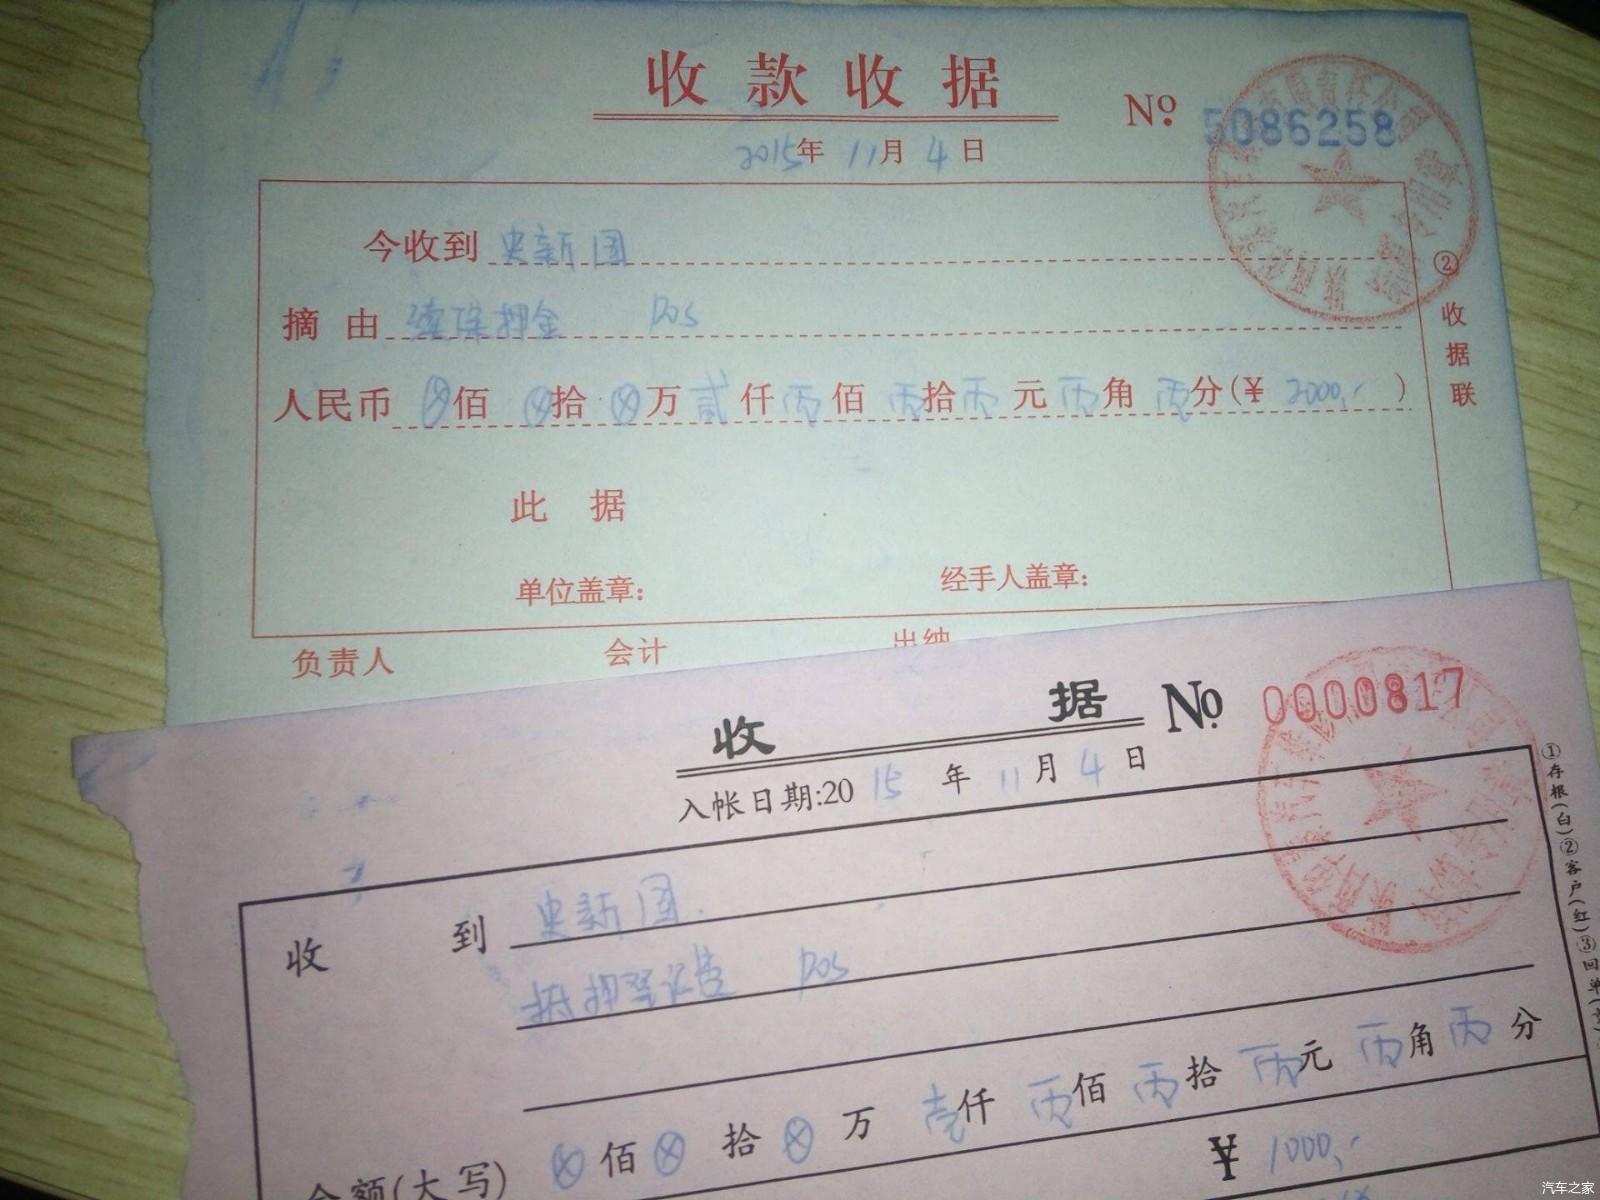 收款收据
No. 5086258
2015年 11月 4日
今收到 史新国
摘由 续保押金 POS
人民币 ⊗佰 ⊗拾 ⊗万 贰仟 零佰 零拾 零元 零角 零分(¥ 2000.- )
此据
单位盖章: 经手人盖章:
负责人 会计 出纳
② 收据联
收据 No. 0000817
入帐日期:2015年 11月 4日
收到 史新国.
抵押登记费 POS
金额(大写) ⊗佰 ⊗拾 ⊗万 壹仟 零佰 零拾 零元 零角 零分
¥ 1000.-
①存根(白)②客户(红)③回单
汽车之家